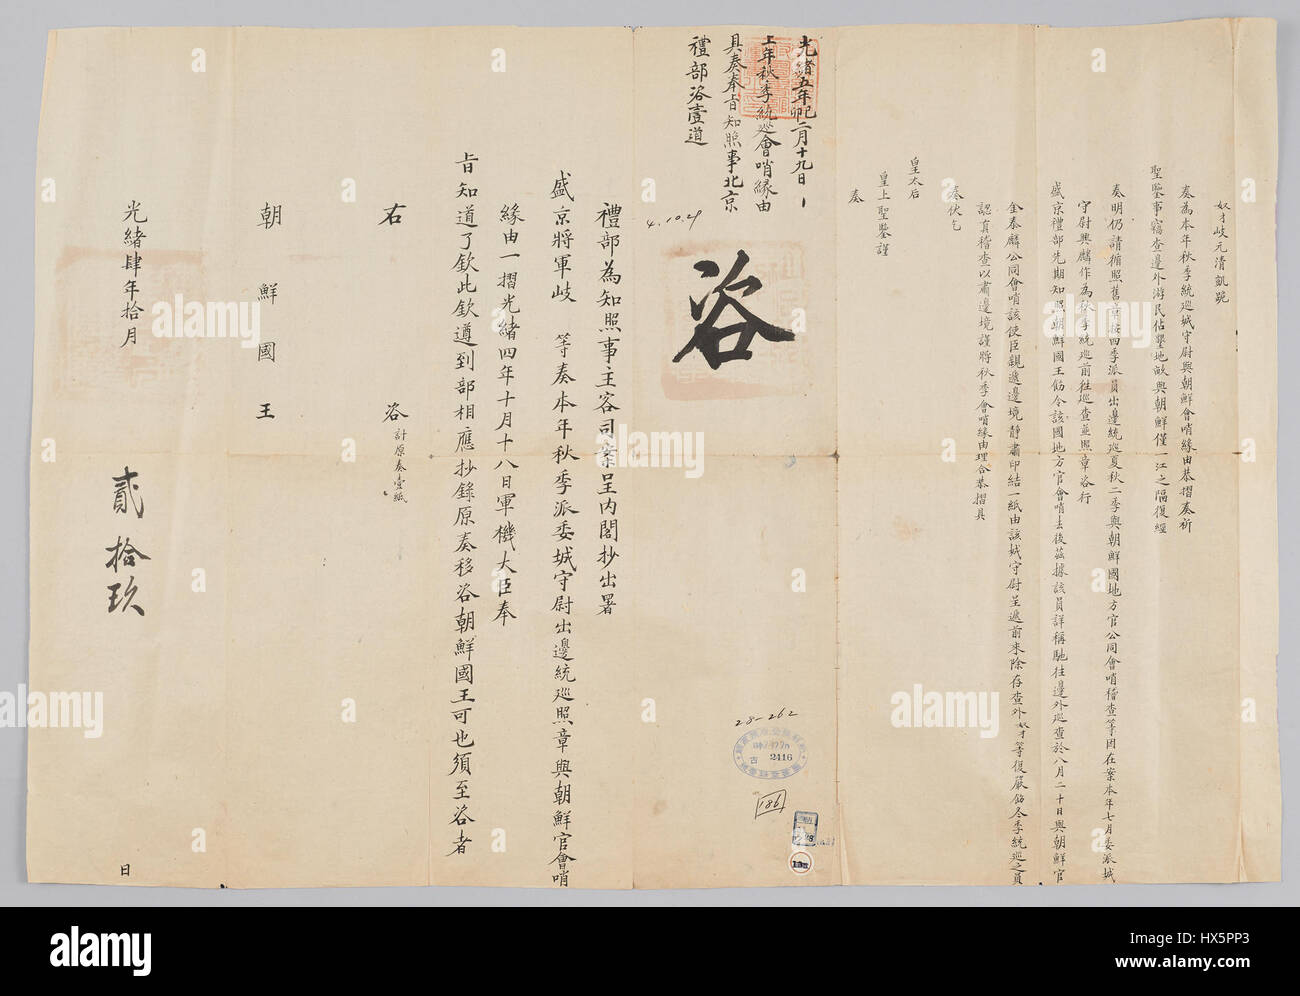 奴才岐元清凱跪
奏為本年秋季統巡城守尉與朝鮮會哨緣由恭摺奏祈
聖鑒事竊查邊外游民佔墾地畝與朝鮮僅一江之隔復經
奏明仍請循照舊章按四季派員出邊統巡夏秋二季與朝鮮國地方官公同會哨稽查等因在案本年七月委派城
守尉興麟作為秋季統巡前往巡查並照章咨行
盛京禮部先期知照朝鮮國王飭令該國地方官會哨去後茲據該員詳稱馳往邊外巡查於八月二十日與朝鮮官
金泰麟公同會哨該使臣親遞邊境靜肅印結一紙由該城守尉呈遞前來除存查外奴才等復嚴飭冬季統巡之員
認真稽查以肅邊境謹將秋季會哨緣由理合恭摺具
奏伏乞
皇太后
皇上聖鑒謹
奏
光緒五年己卯二月十九日
上年秋季統巡會哨緣由
具奏奉旨知照事北京
禮部咨壹道
4.10.29
咨
禮部為知照事主客司案呈內閣抄出署
盛京將軍岐 等奏本年秋季派委城守尉出邊統巡照章與朝鮮官會哨
緣由一摺光緒四年十月十八日軍機大臣奉
旨知道了欽此欽遵到部相應抄錄原奏移咨朝鮮國王可也須至咨者
右 咨
計原奏壹紙
朝鮮國王
光緒肆年拾月 日
貳拾玖
28-262
古 2416
186
alamy
Image ID: HX5PP3
www.alamy.com